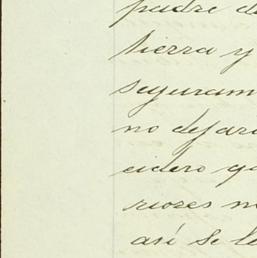 padre de
tierra y
seguram
no dejar
cidero q
riores n
así se le